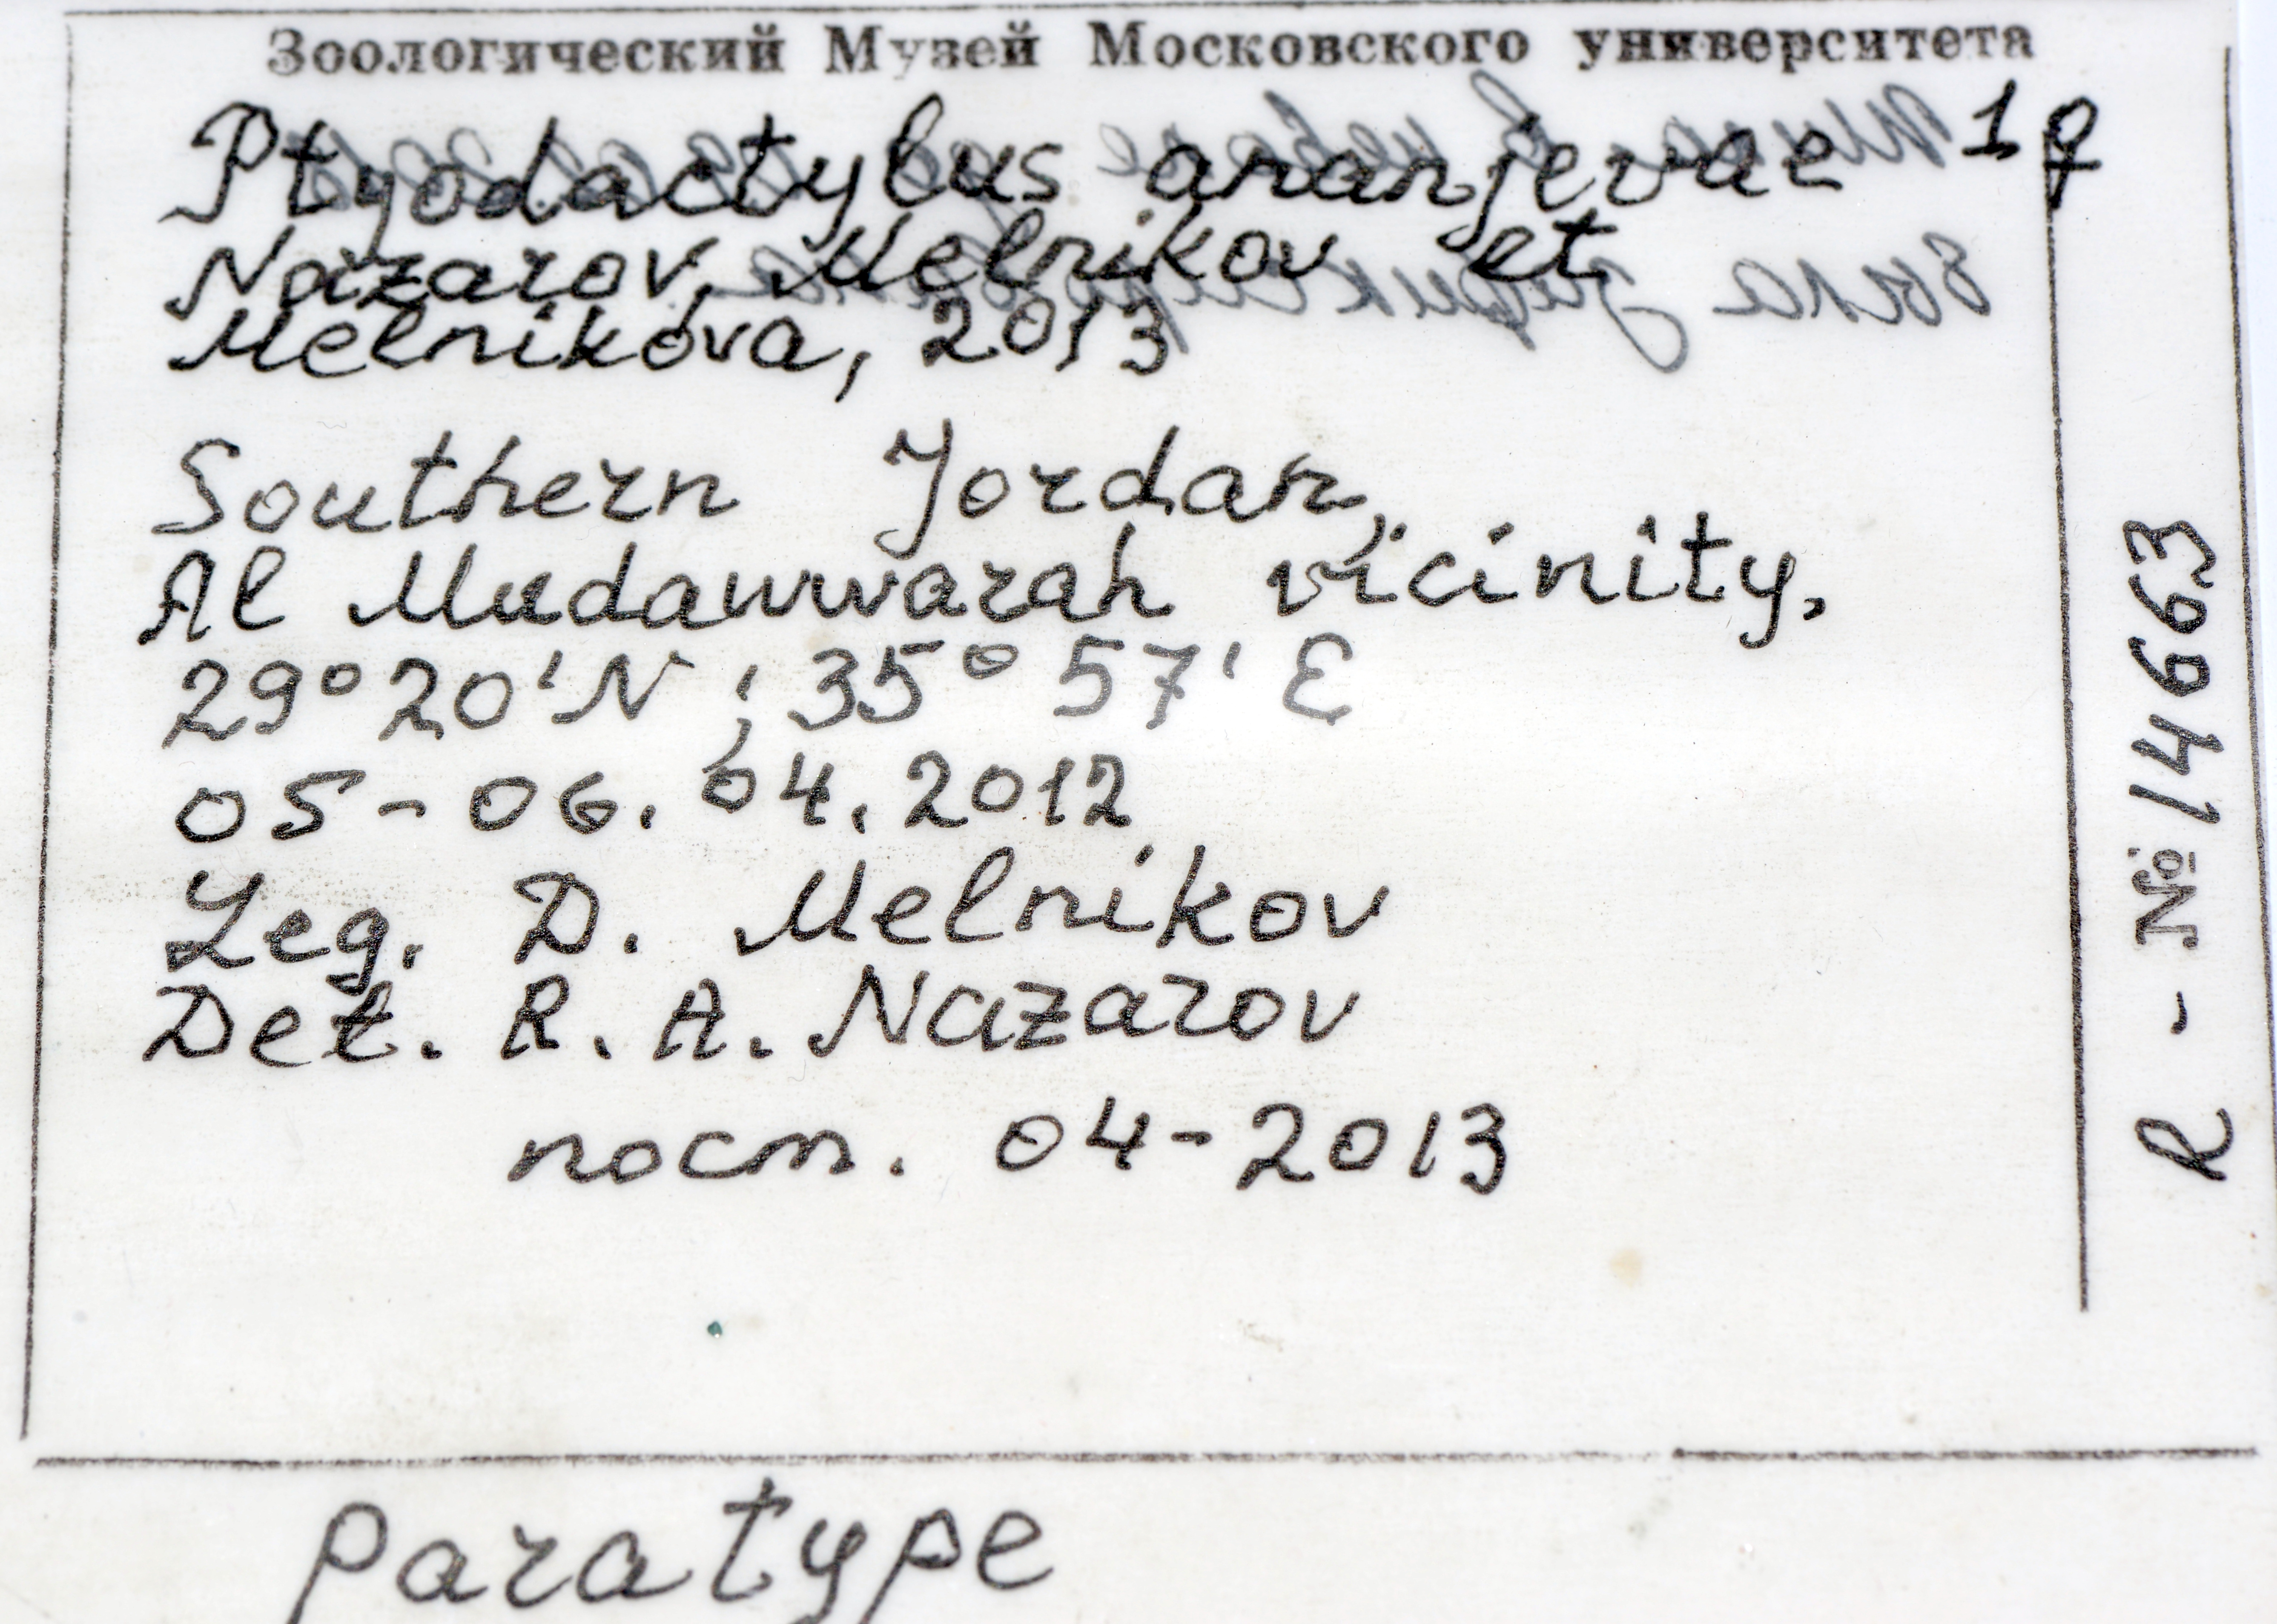 Зоологический Музей Московского университета
Ptyodactylus ananjevae 1 ♀
Nazarov, Melnikov et
Melnikova, 2013
Southern Jordan,
Al Mudawwarah vicinity,
29°20'N ; 35°57'E
05-06.04.2012
Leg. D. Melnikov
Det. R. A. Nazarov
пост. 04-2013
R - № 14663
paratype